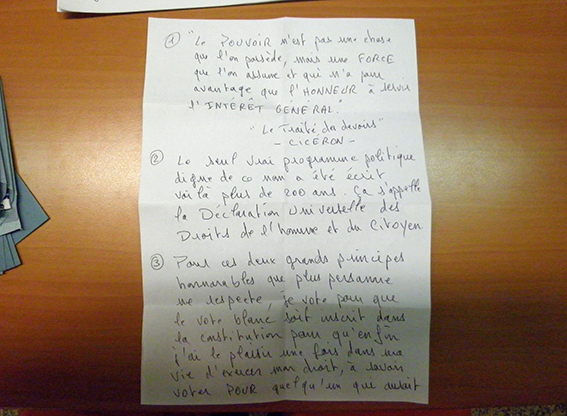 ① "Le POUVOIR n'est pas une chose
que l'on possède, mais une FORCE
que l'on assume et qui n'a pour
avantage que l'HONNEUR à servir
l'INTERÊT GÉNÉRAL."
"Le Traité des devoirs"
- CICERON -
② Le seul vrai programme politique
digne de ce nom a été écrit
voilà plus de 200 ans. Ça s'appelle
la Déclaration Universelle des
Droits de l'homme et du Citoyen
③ Pour ces deux grands principes
honnorables que plus personne
ne respecte, je vote pour que
le vote blanc soit inscrit dans
la constitution pour qu'enfin
j'ai le plaisir une fois dans ma
vie d'exercer mon droit, à savoir
voter POUR quelqu'un que aurait